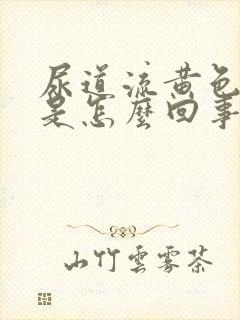 尿道流黄色
是怎麼回事
山竹雲霧茶